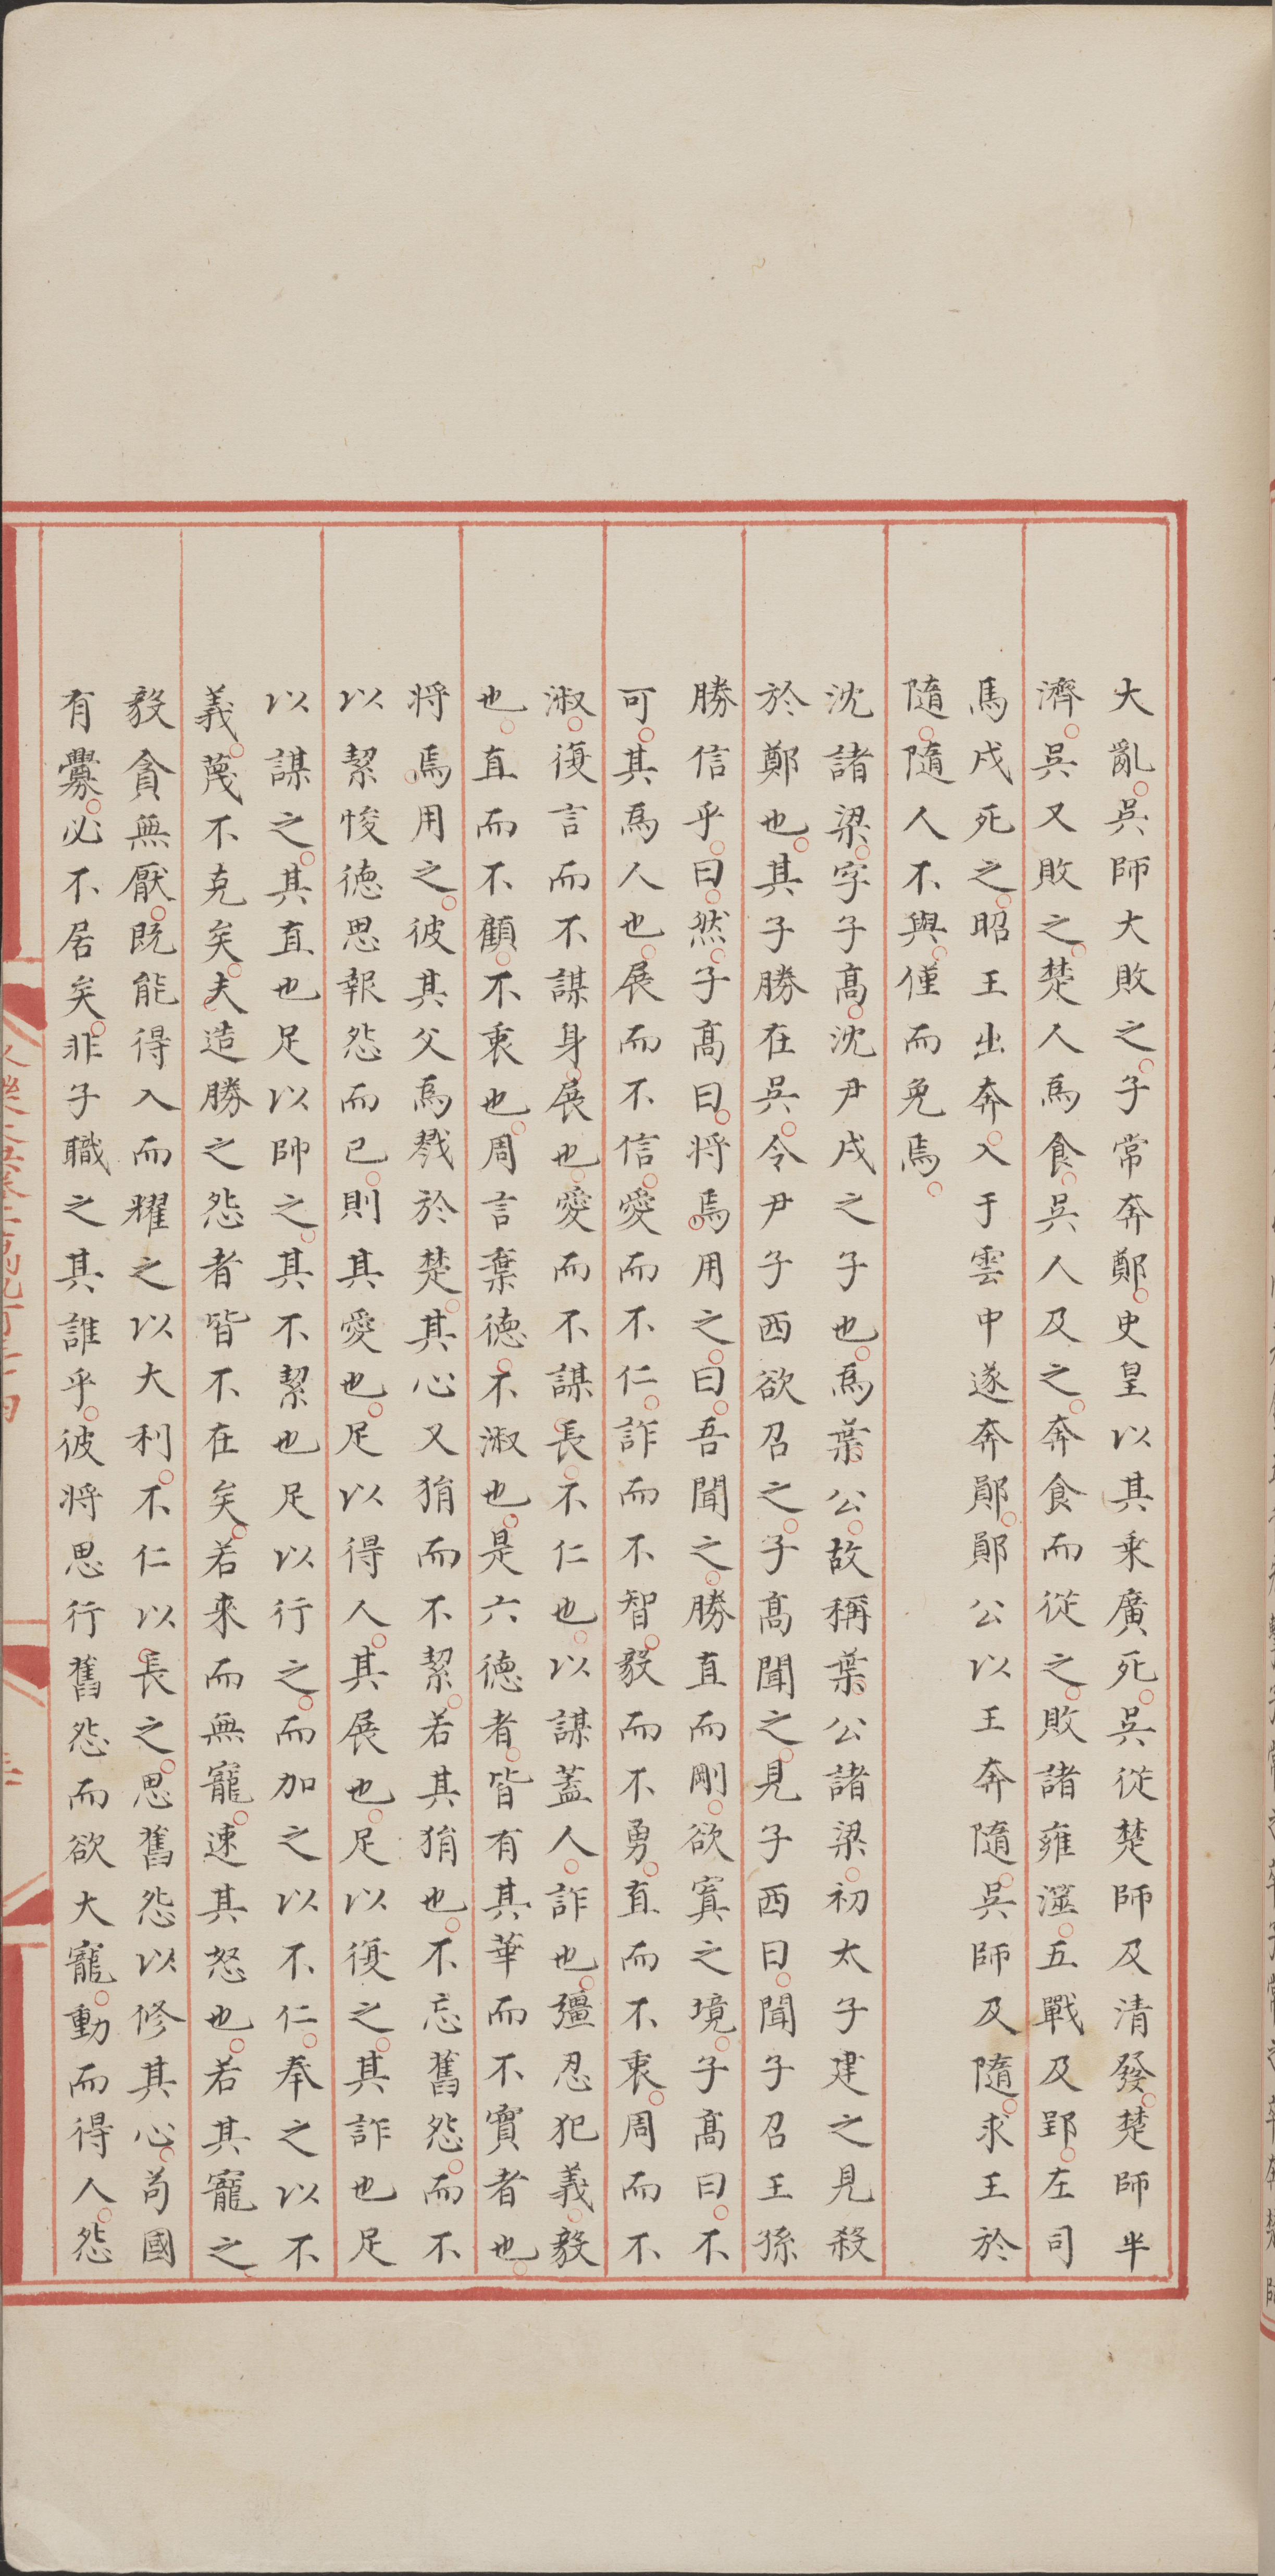 大亂吳師大敗之子常奔鄭史皇以其乘廣死吳從楚師及清發楚師半
濟吳又敗之楚人爲食吳人及之奔食而從之敗諸雍澨五戰及郢左司
馬戌死之昭王出奔入于雲中遂奔鄖鄖公以王奔隨吳師及隨求王於
隨隨人不與僅而免焉
沈諸梁字子高沈尹戌之子也爲葉公故稱葉公諸梁初太子建之見殺
於鄭也其子勝在吳令尹子西欲召之子高聞之見子西曰聞子召王孫
勝信乎曰然子高曰將焉用之曰吾聞之勝直而剛欲寘之境子高曰不
可其爲人也展而不信愛而不仁詐而不智毅而不勇直而不衷周而不
淑復言而不謀身展也愛而不謀長不仁也以謀蓋人詐也彊忍犯義毅
也直而不顧不衷也周言棄德不淑也是六德者皆有其華而不實者也
將焉用之彼其父爲戮於楚其心又狷而不絜若其狷也不忘舊怨而不
以絜悛德思報怨而已則其愛也足以得人其展也足以復之其詐也足
以謀之其直也足以帥之其不絜也足以行之而加之以不仁奉之以不
義蔑不克矣夫造勝之怨者皆不在矣若來而無寵速其怒也若其寵之
毅貪無厭既能得入而耀之以大利不仁以長之思舊怨以修其心苟國
有釁必不居矣非子職之其誰乎彼將思行舊怨而欲大寵動而得人怨